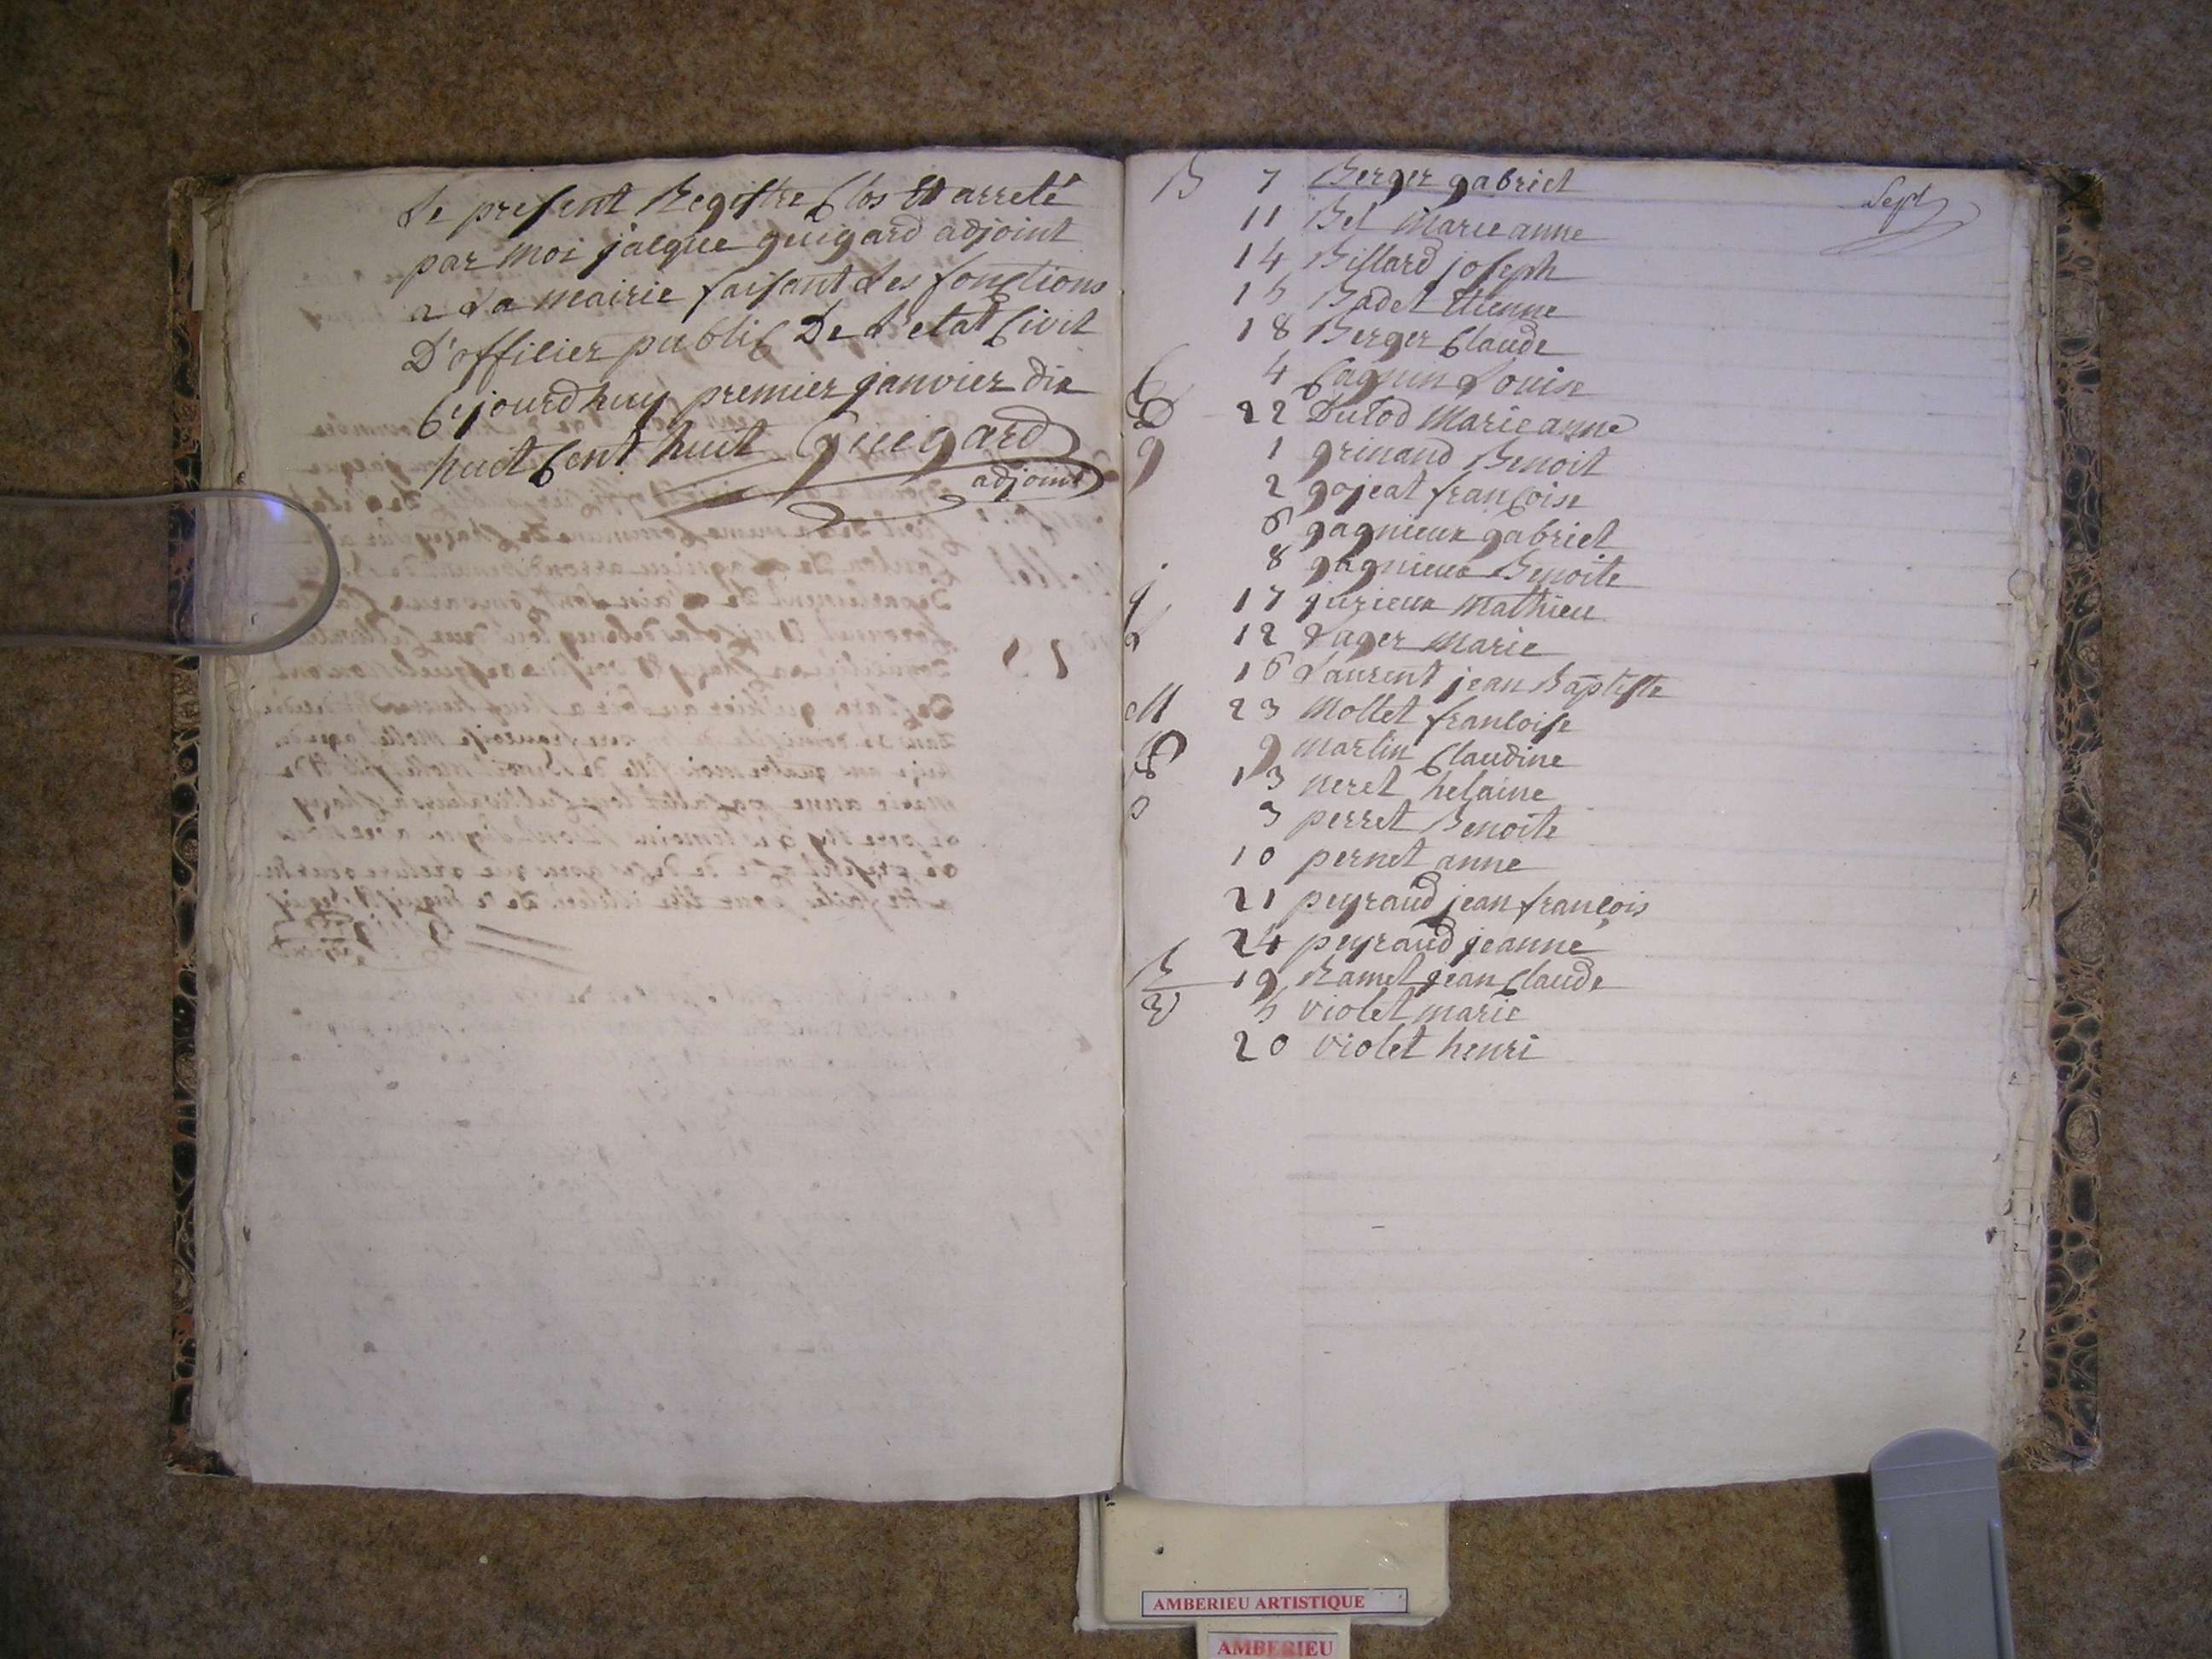 Le present Registre Clos Et arreté
par moi jacque guigard adjoint
a La mairie faisant Les fonctions
D'officier public De L'etat Civil
Cejourdhuy premier janvier dix
huit Cent huit Guigard
adjoint
Sept
B 7 Berger gabriel
11 Bel Marie anne
14 Billard joseph
15 Badet Etienne
18 Berger Claude
C 4 Cagnin Louise
D 22 Dulod Marie anne
g 1 grinand Benoit
2 gojeat francoise
6 gagnieux gabriel
8 gagnieux Benoite
j 17 jurieux Mathieu
L 12 Lager Marie
16 Laurent jean Baptiste
M 23 Mollet francoise
9 martin Claudine
13 neret helaine
p 3 perret Benoite
10 pernet anne
21 peyraud jean françois
24 peyraud jeanne
R 19 Ramel jean Claude
V 5 violet marie
20 violet henri
AMBERIEU ARTISTIQUE
AMBERIEU